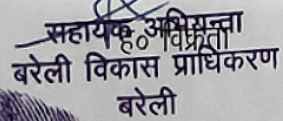 सहायक अभियन्ता
ह० विक्रेता
बरेली विकास प्राधिकरण
बरेली